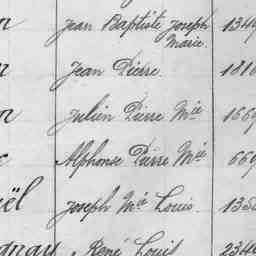 Jean Baptiste Joseph
Marie
Jean Pierre 1816
Julien Pierre Mie
Alphonse Pierre Mie 669
ël Joseph Mie Louis 135
gnay René Louis 234